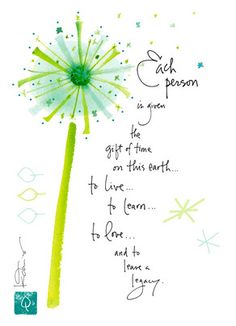 Each
person
is given
the
gift of time
on this earth...
to live...
to learn...
to love...
and to
leave a
legacy.